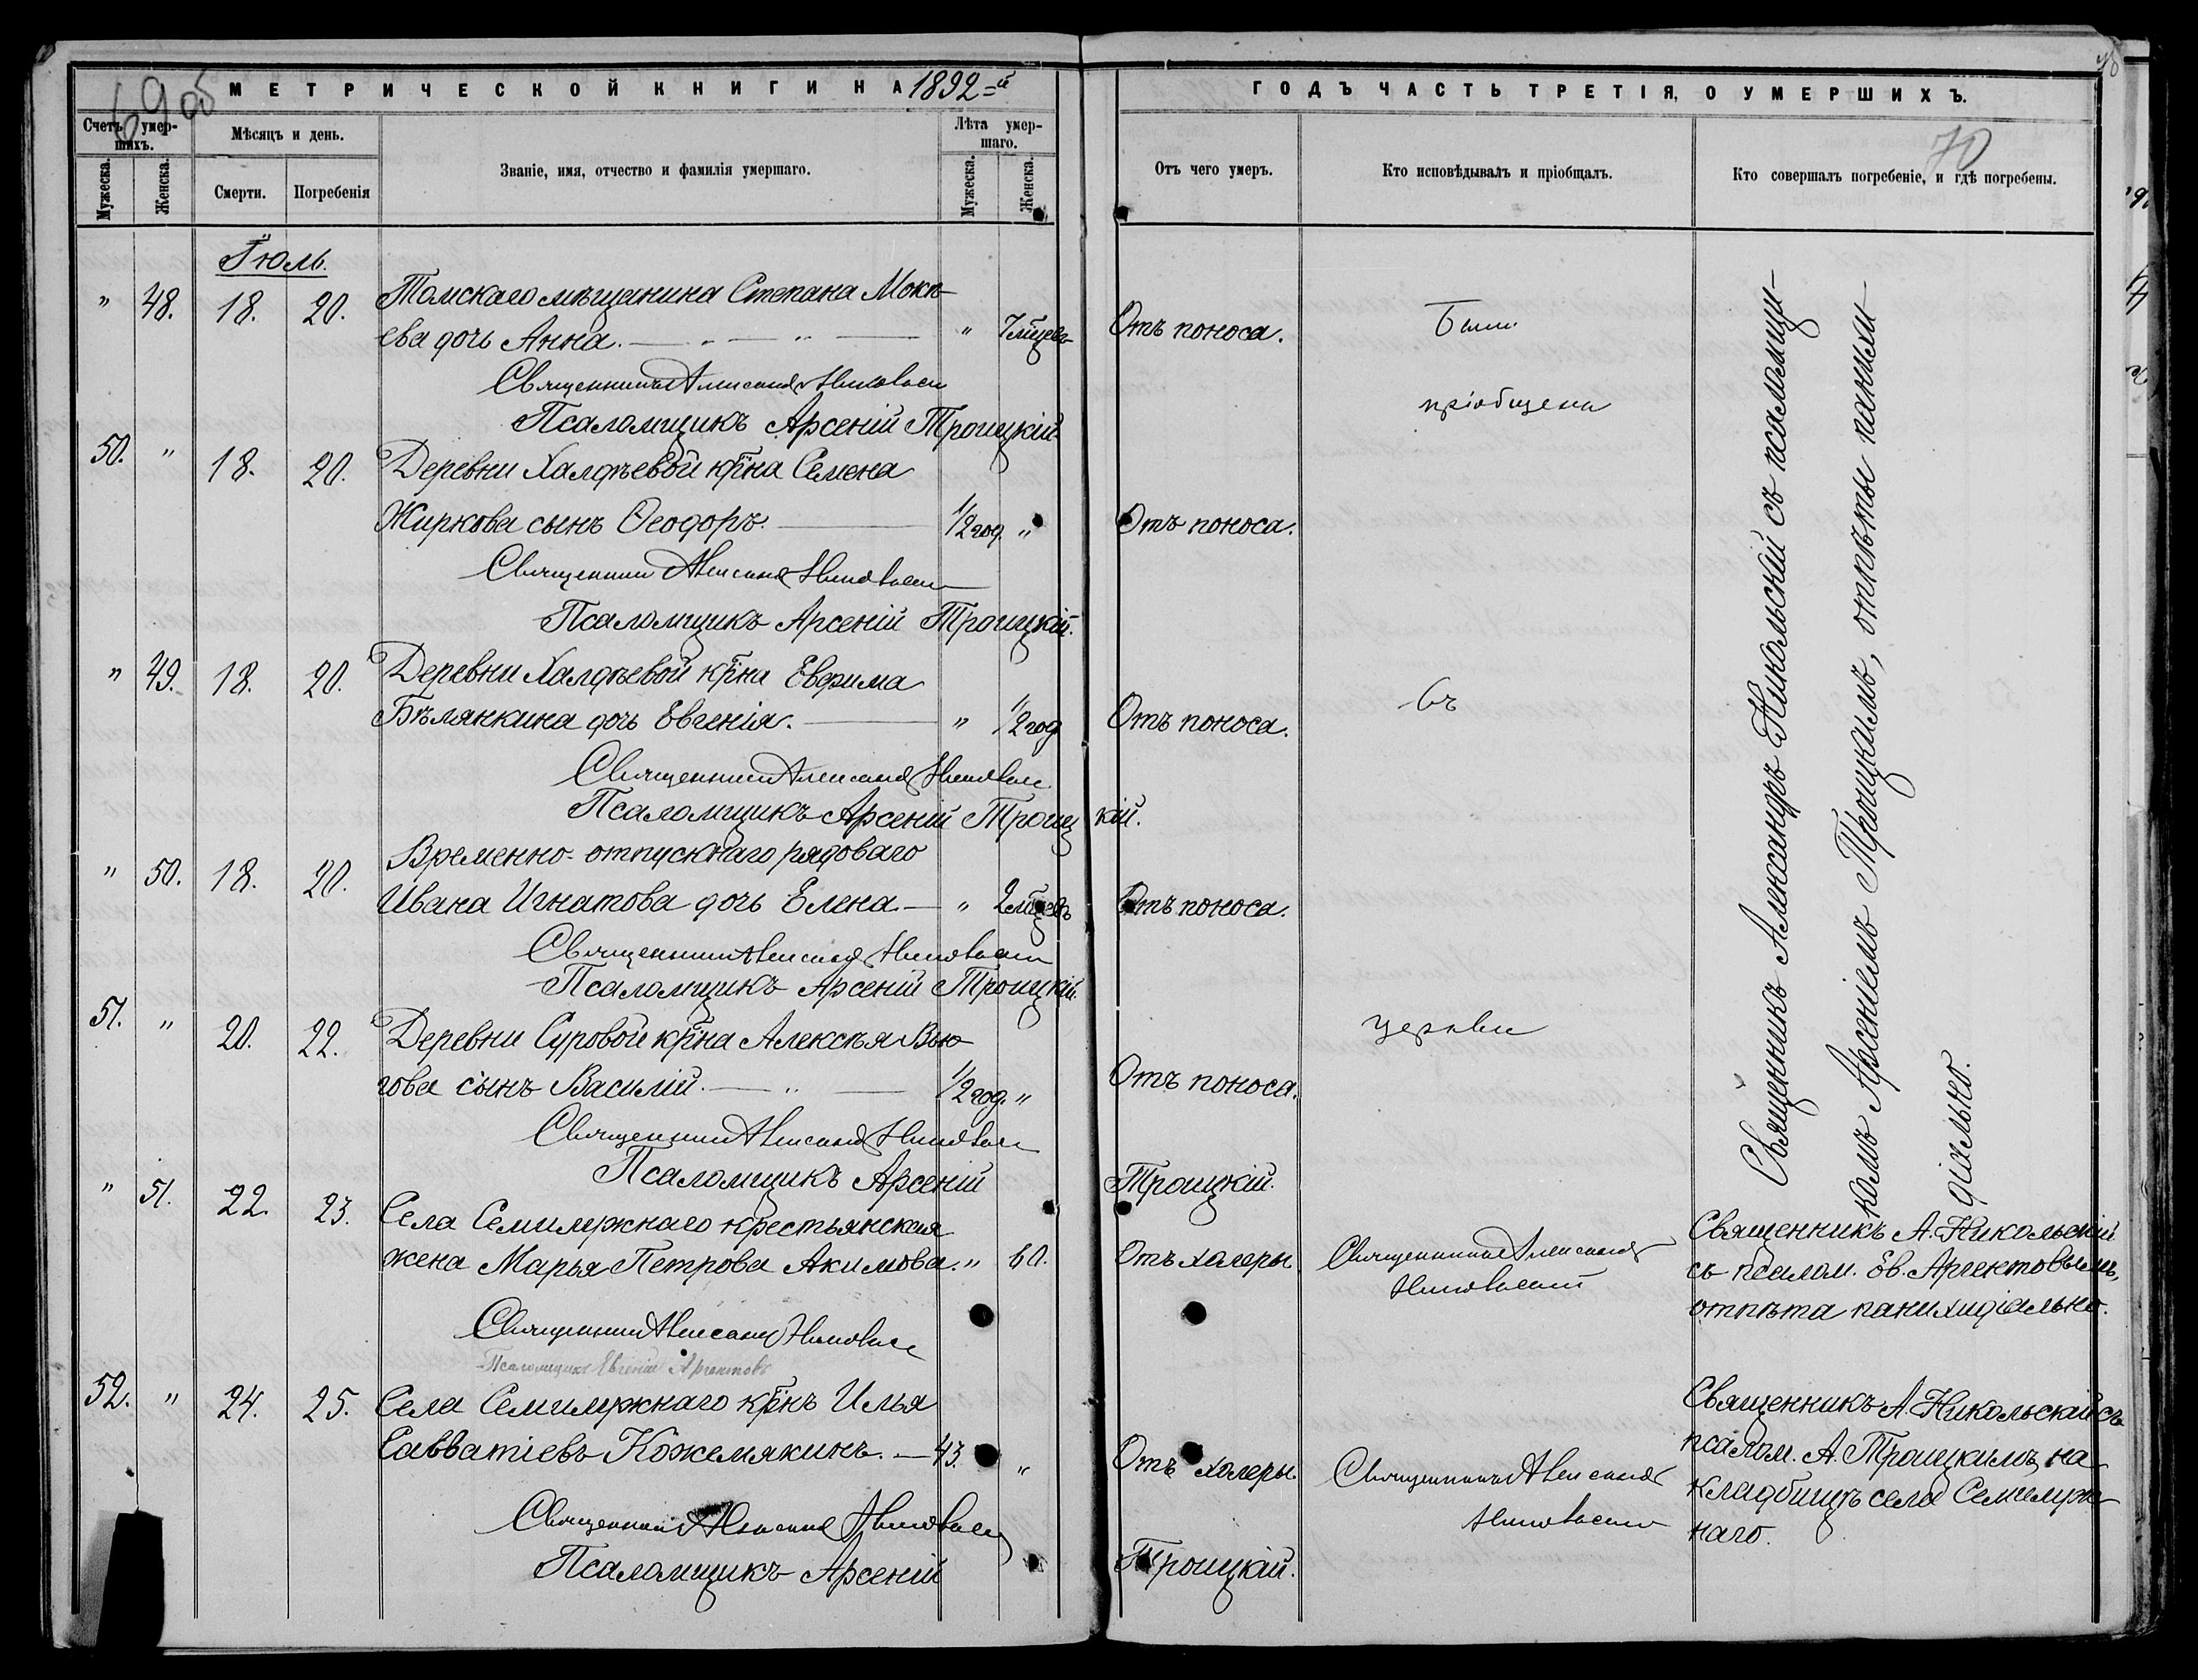 69 об
МЕТРИЧЕСКОЙ КНИГИ НА 1892=й
ГОДЪ ЧАСТЬ ТРЕТІЯ, О УМЕРШИХЪ.
70
Счетъ умер-
шихъ.
Мѣсяцъ и день.
Званіе, имя, отчество и фамилія умершаго.
Лѣта умер-
шаго.
Мужеска.
Женска.
Смерти.
Погребенія
Мужеска.
Женска.
Отъ чего умеръ.
Кто исповѣдывалъ и пріобщалъ.
Кто совершалъ погребеніе, и гдѣ погребены.
Іюль.
" 48. 18. 20. Томскаго мѣщанина Степана Моки-
ева дочь Анна. " 7 мцевъ Отъ поноса. Были
Священникъ Александръ Никольскій
пріобщены
Псаломщикъ Арсеній Троицкій.
50. " 18. 20. Деревни Халдѣевой крна Семена
Жиркова сынъ Ѳеодоръ. 1/2 год. " Отъ поноса.
Священникъ Александръ Никольскій
Псаломщикъ Арсеній Троицкій.
" 49. 18. 20. Деревни Халдѣевой крна Евфима
Бѣлянкина дочь Евгенія. " 1/2 год Отъ поноса. въ
Священникъ Александръ Никольскій
Псаломщикъ Арсеній Троицкій.
" 50. 18. 20. Временно-отпускнаго рядоваго
Ивана Игнатова дочь Елена " 2 мцевъ Отъ поноса.
Священникъ Александръ Никольскій
Псаломщикъ Арсеній Троицкій.
51. " 20. 22. Деревни Суровой крна Алексѣя Вью-
церкви
гова сынъ Василій. 1/2 год. " Отъ поноса.
Священникъ Александръ Никольскій
Псаломщикъ Арсеній Троицкій.
Священникъ Александръ Никольскій съ псаломщи-
комъ Арсеніемъ Троицкимъ, отпѣты панихи-
діально.
" 51. 22. 23. Села Семилужнаго крестьянская
жена Марья Петрова Акимова. " 60. Отъ холеры
Священникъ Александръ
Никольскій
Священникъ А. Никольскій
съ псалом. Ев. Аргентовымъ,
отпѣта панихидіально.
Священникъ Александръ Никольскій
Псаломщикъ Евгеній Аргентовъ
52. " 24. 25. Села Семилужнаго крнъ Илья
Савватіевъ Кожемякинъ. 43. " Отъ холеры.
Священникъ Александръ
Никольскій
Священникъ А. Никольскій съ
псалом. А. Троицкимъ, на
кладбищѣ села Семилуж-
наго.
Священникъ Александръ Никольскій
Псаломщикъ Арсеній Троицкій.